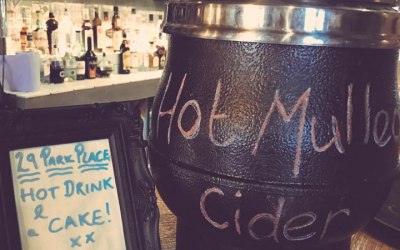 29 PARK PLACE
HOT DRINK
&
a CAKE!
xx
Hot Mulled
Cider